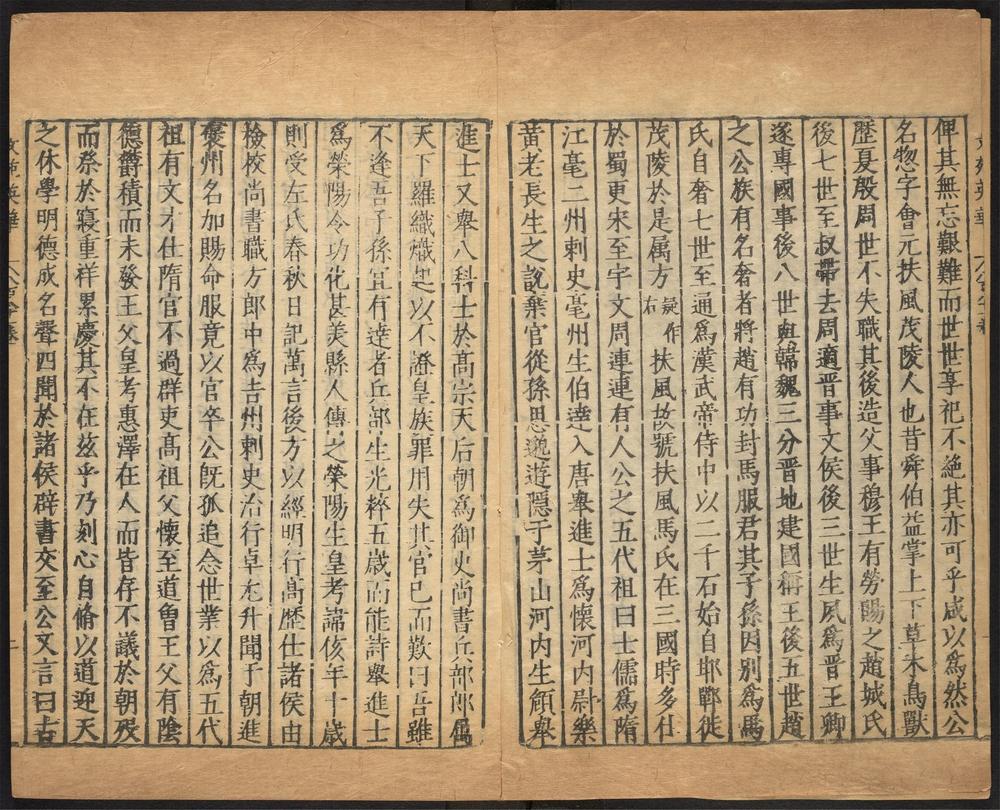 俾其無忘艱難而世世享祀不絶其亦可乎咸以爲然公
名惣字會元扶風茂陵人也昔舜伯益掌上下草木鳥獸
歷夏殷周世不失職其後造父事穆王有勞賜之趙城氏
後七世至叔帶去周適晋事文侯後三世生夙爲晋王卿
遂專國事後八世與韓魏三分晋地建國稱王後五世趙
之公族有名奢者將趙有功封馬服君其子孫因別爲馬
氏自奢七世至通爲漢武帝侍中以二千石始自邯鄲徙
茂陵於是属方疑作右扶風故號扶風馬氏在三國時多仕
於蜀更宋至宇文周連連有人公之五代祖曰士儒爲隋
江毫二州刺史毫州生伯達入唐舉進士爲懷河内尉樂
黃老長生之說棄官從孫思邈遊隱于茅山河内生頠舉
進士又舉八科士於髙宗天后朝爲御史尚書兵部郎屬
天下羅織熾起以不證皇族罪用失其官已而歎曰吾雖
不逢吾子孫宜有達者兵部生光粹五歲而能詩舉進士
爲榮陽令功化甚美縣人傳之榮陽生皇考諱侅年十歲
則受左氏春秋日記萬言後方以經明行髙歷仕諸侯由
檢校尚書職方郎中爲吉州刺史治行卓尤升聞于朝進
襃州名加賜命服竟以官卒公旣孤追念世業以爲五代
祖有文才仕隋官不過群吏髙祖父懷至道曽王父有陰
德爵積而未發王父皇考惠澤在人而皆存不議於朝殁
而祭於寢重祥累慶其不在兹乎乃刻心自脩以道迎天
之休學明德成名聲四聞於諸侯辟書交至公文言曰古